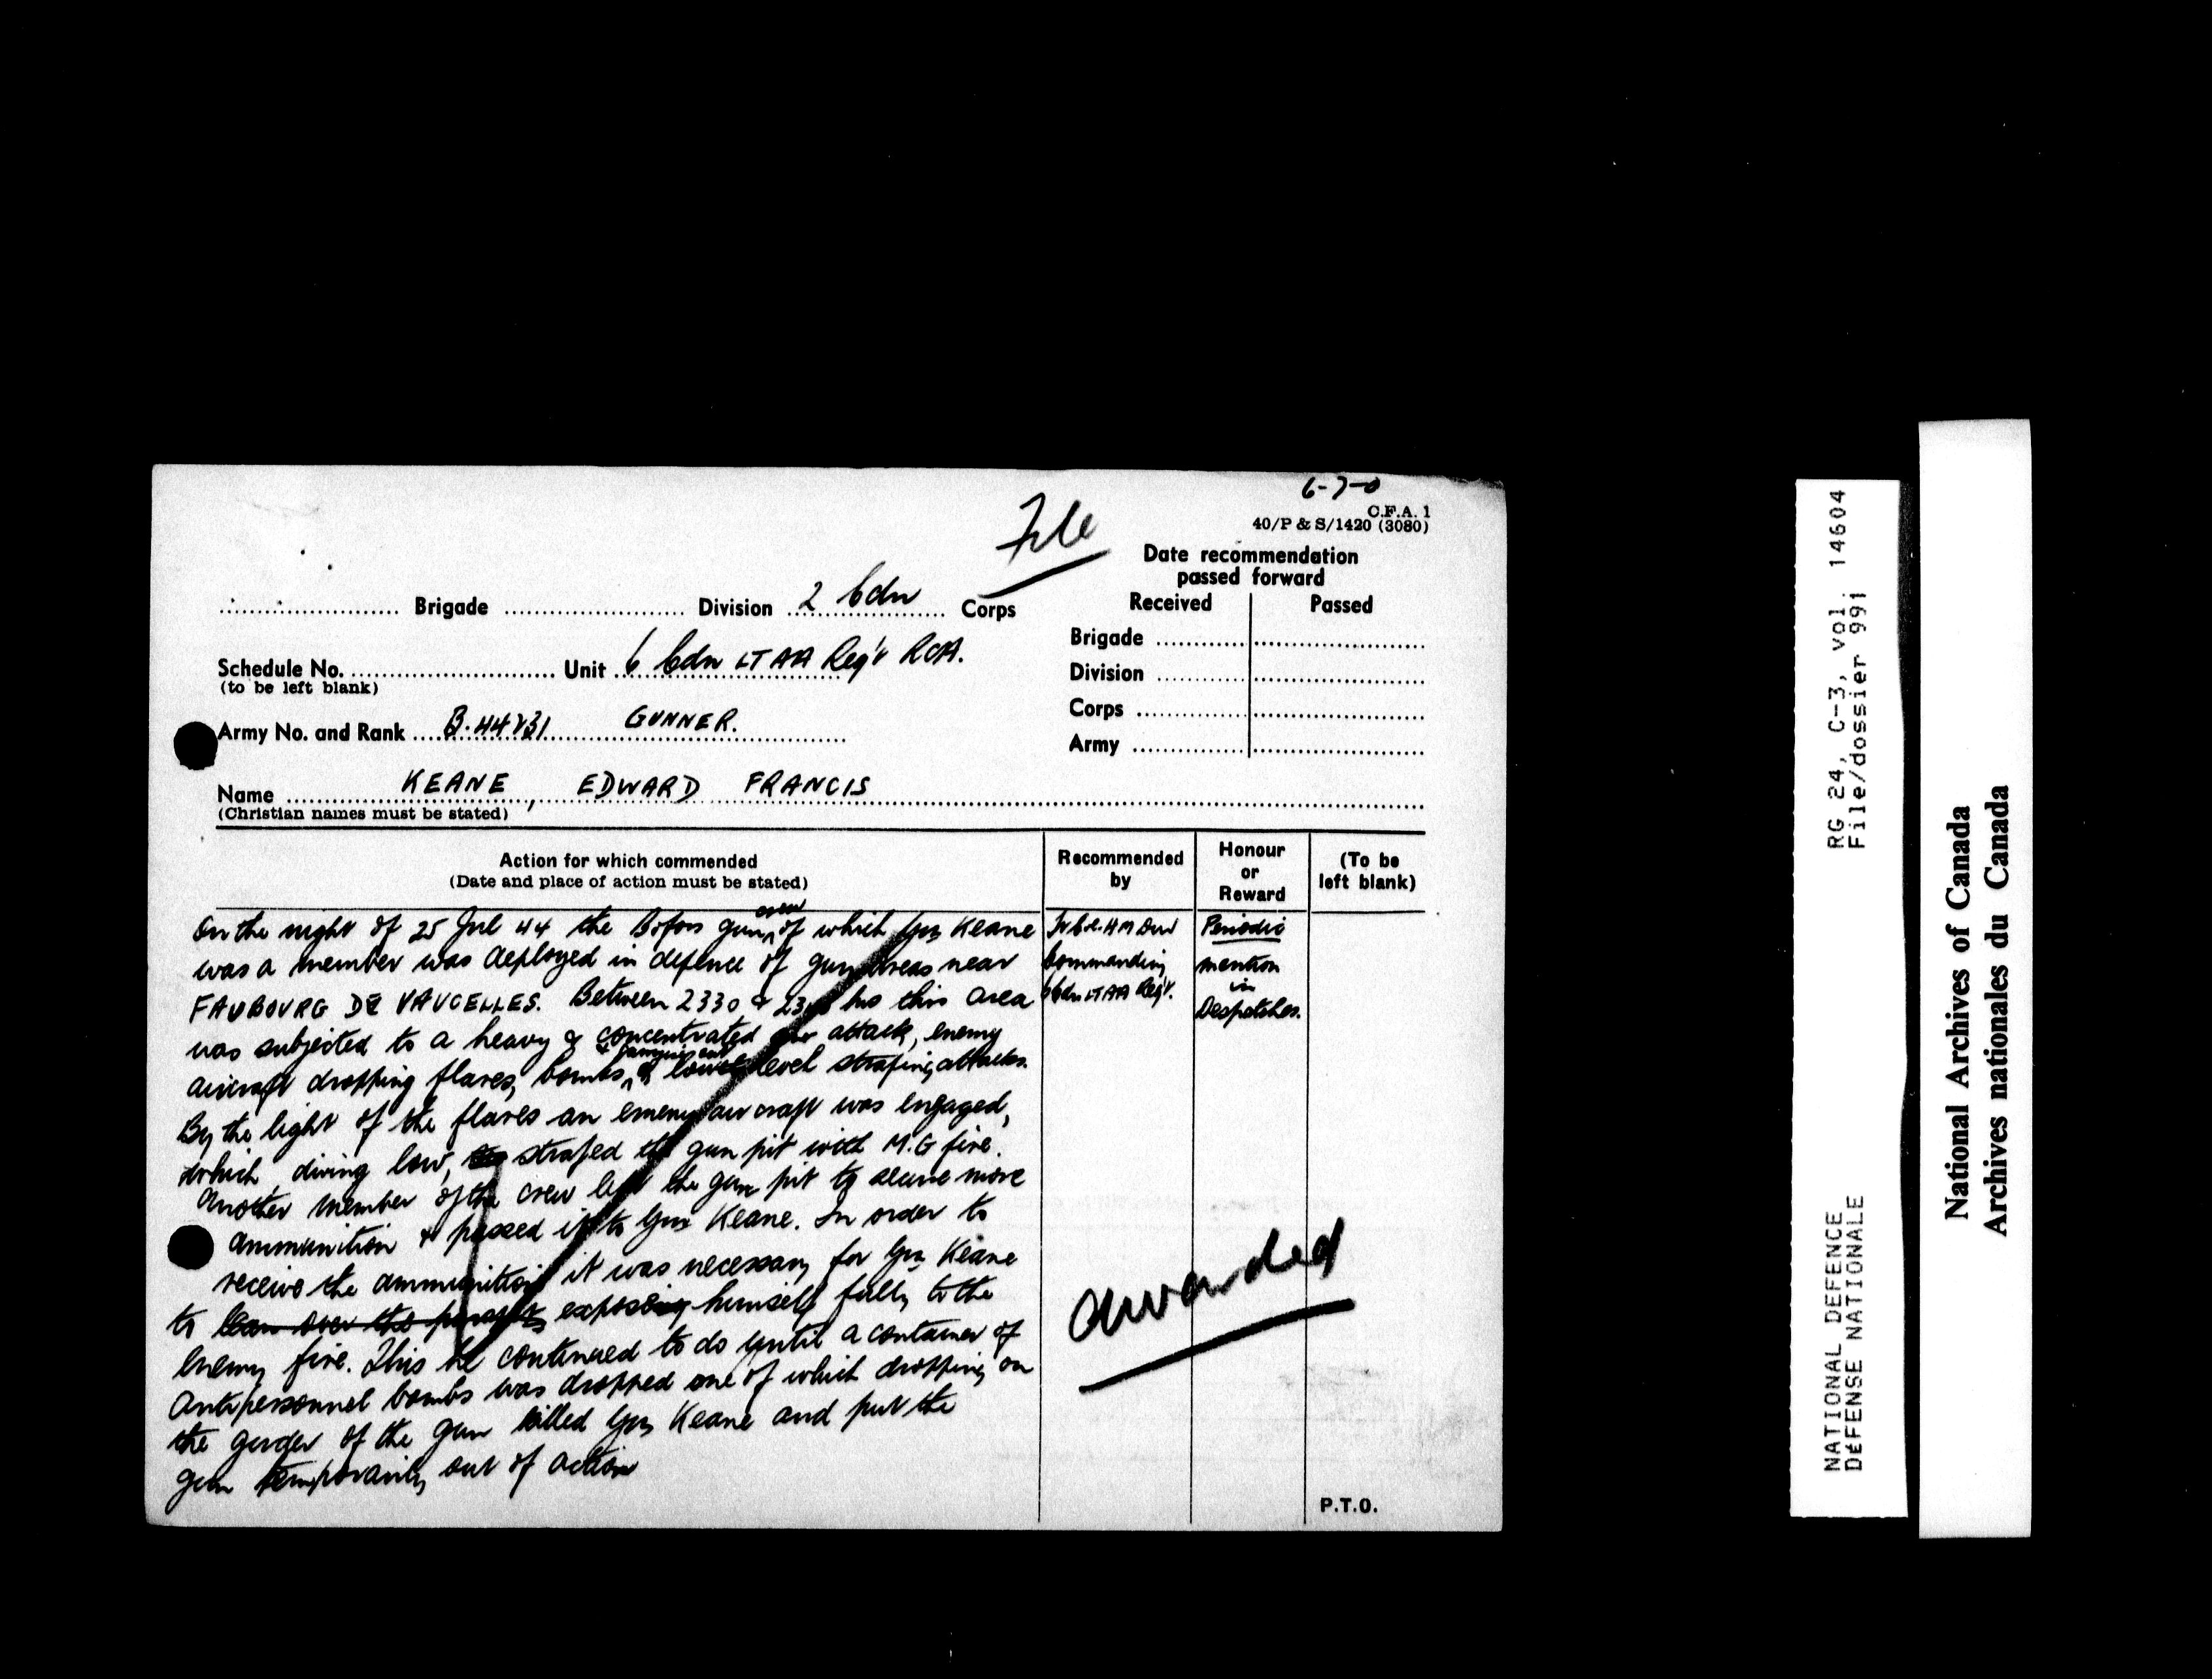 6-7-0
File
C.F.A. 1
40/P & S/1420 (3080)
Date recommendation
passed forward
Received Passed
Brigade
Division
Corps
Army
Brigade Division 2 Cdn Corps
Schedule No. Unit 6 Cdn LT AA Reg't RCA.
(to be left blank)
Army No. and Rank GUNNER.
Name KEANE, EDWARD FRANCIS
(Christian names must be stated)
Action for which commended
(Date and place of action must be stated)
On the night of 25 Jul 44 the Bofors gun crew of which Gnr Keane
was a member was deployed in defence of gun areas near
FAUBOURG DE VAUCELLES. Between 2330 & hrs this area
was subjected to a heavy & concentrated air attack, enemy
aircraft dropping flares, bombs, & carrying out level strafing attacks.
By the light of the flares an enemy aircraft was engaged,
which, diving low, strafed the gun pit with M.G fire.
Another member of the crew left the gun pit to secure more
ammunition & passed it to Gnr Keane. In order to
receive the ammunition it was necessary for Gnr Keane
to lean over the parapet exposing himself fully to the
enemy fire. This he continued to do until a container of
Antipersonnel bombs was dropped one of which dropping on
the girder of the gun killed Gnr Keane and put the
gun temporarily out of action
Recommended
by
Commanding
6 Cdn LT AA Reg't.
Honour
or
Reward
Periodic
mention
in
Despatches.
(To be
left blank)
awarded
P.T.O.
RG 24, C-3, vol. 14604
File/dossier 991
NATIONAL DEFENCE
DEFENSE NATIONALE
National Archives of Canada
Archives nationales du Canada